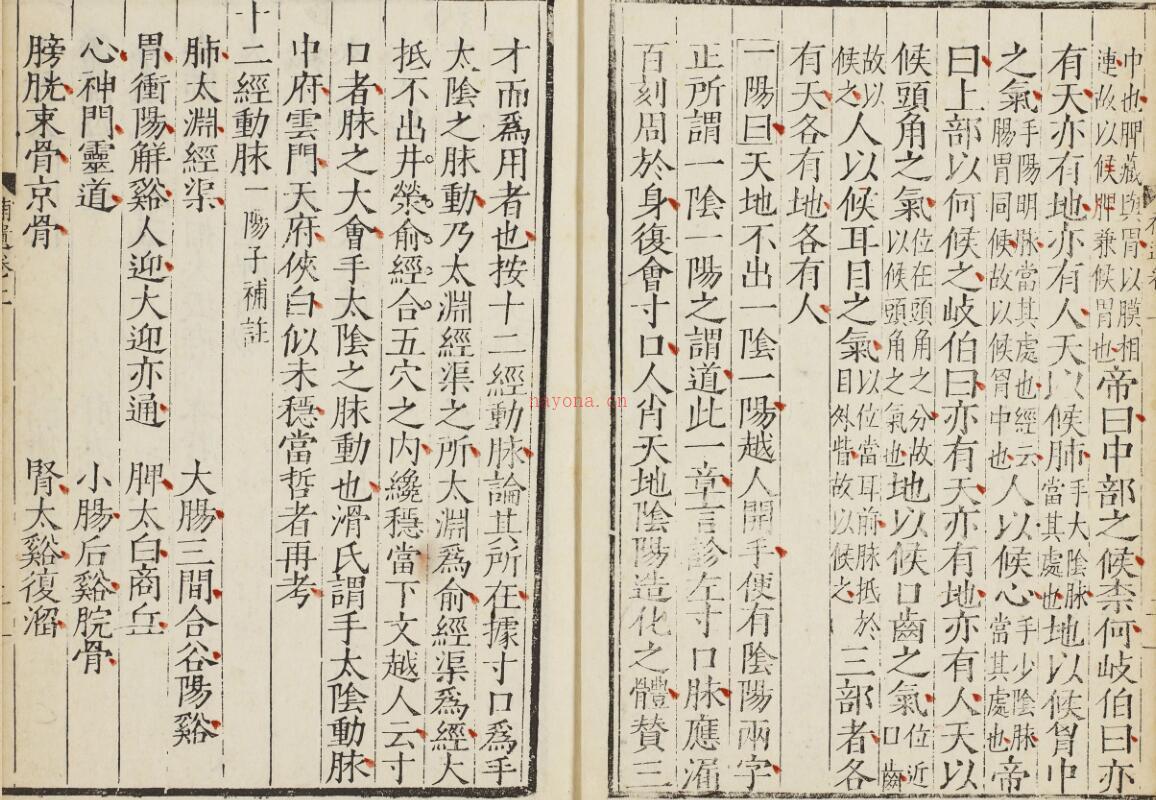 中也脾藏與胃以膜相連故以候脾兼候胃也帝曰中部之候柰何岐伯曰亦
有天亦有地亦有人天以候肺手太陰脉當其處也地以候胷中
之氣手陽明脉當其處也經云腸胃同候故以候胷中也人以候心手少陰脉當其處也帝
曰上部以何候之岐伯曰亦有天亦有地亦有人天以
候頭角之氣位在頭角之分故以候頭角之氣也地以候口齒之氣位近口齒
故以候之人以候耳目之氣以位當耳前脉抵於目外眥故以候之三部者各
有天各有地各有人
一陽曰天地不出一陰一陽越人開手便有陰陽兩字
正所謂一陰一陽之謂道此一章言診左寸口脉應漏
百刻周於身復會寸口人肖天地陰陽造化之體贊三
才而爲用者也按十二經動脉論其所在據寸口爲手
太陰之脉動乃太淵經渠之所太淵爲俞經渠爲經大
抵不出井滎俞經合五穴之内纔穩當下文越人云寸
口者脉之大會手太陰之脉動也滑氏謂手太陰動脉
中府雲門天府俠白似未穩當哲者再考
十二經動脉一陽子補註
肺太淵經渠 大腸三間合谷陽谿
胃衝陽觧谿人迎大迎亦通 脾太白商丘
心神門靈道 小腸后谿脘骨
膀胱束骨京骨 腎太谿復溜
nayona.cn